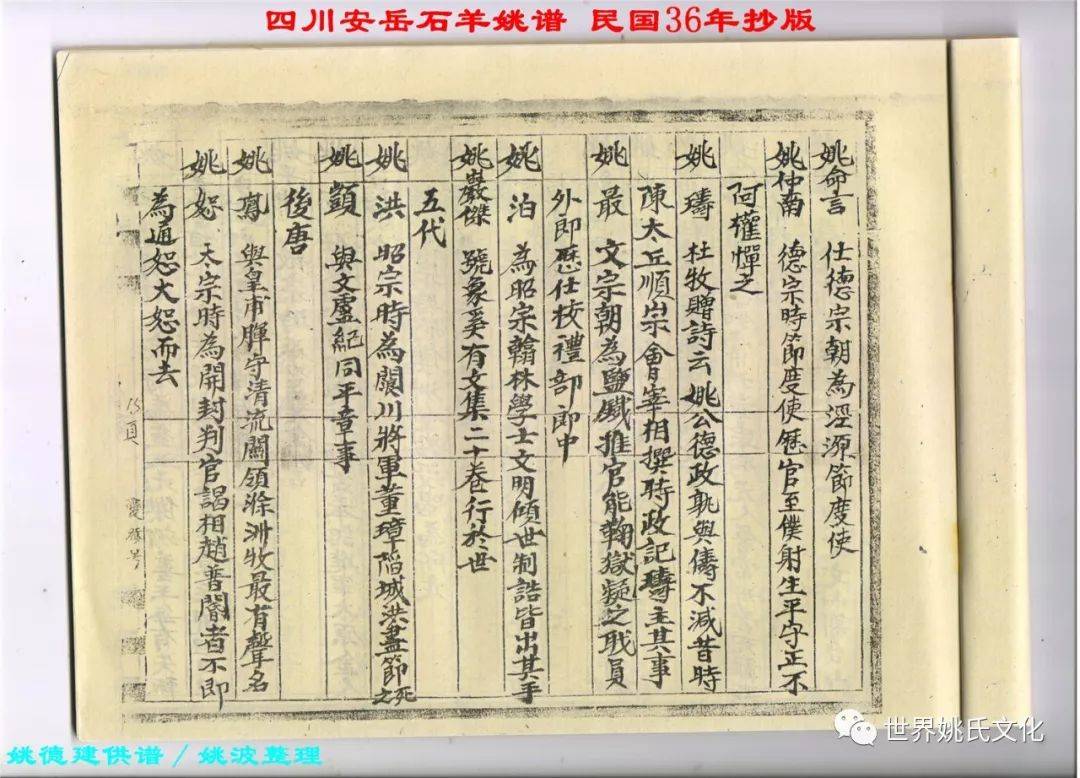 四川安岳石羊姚谱 民国36年抄版
姚命言 仕德宗朝為涇源節度使
姚仲南 德宗時節度使歷官至僕射生平守正不
阿權憚之
姚璹 杜牧贈詩云姚公德政孰與儔不減昔時
陳太丘順崇會宰相撰時政記璹主其事
姚最 文宗朝為鹽鐵推官能鞠獄疑之戢員
外郎歷仕校禮部郎中
姚洎 為昭宗翰林學士文明傾世制誥皆出其手
姚巖傑 號象奚有文集二十卷行於世
五代
姚洪 昭宗時為閬川將軍董璋陷城洪盡節死之
姚顗 與文盧紀同平章事
後唐
姚鳳 與皇甫暉守清流關領滁洲牧最有聲名
姚恕 太宗時為開封判官謁相趙普閽者不即
為通恕大恕而去
15頁
世界姚氏文化
姚德建供谱/姚波整理